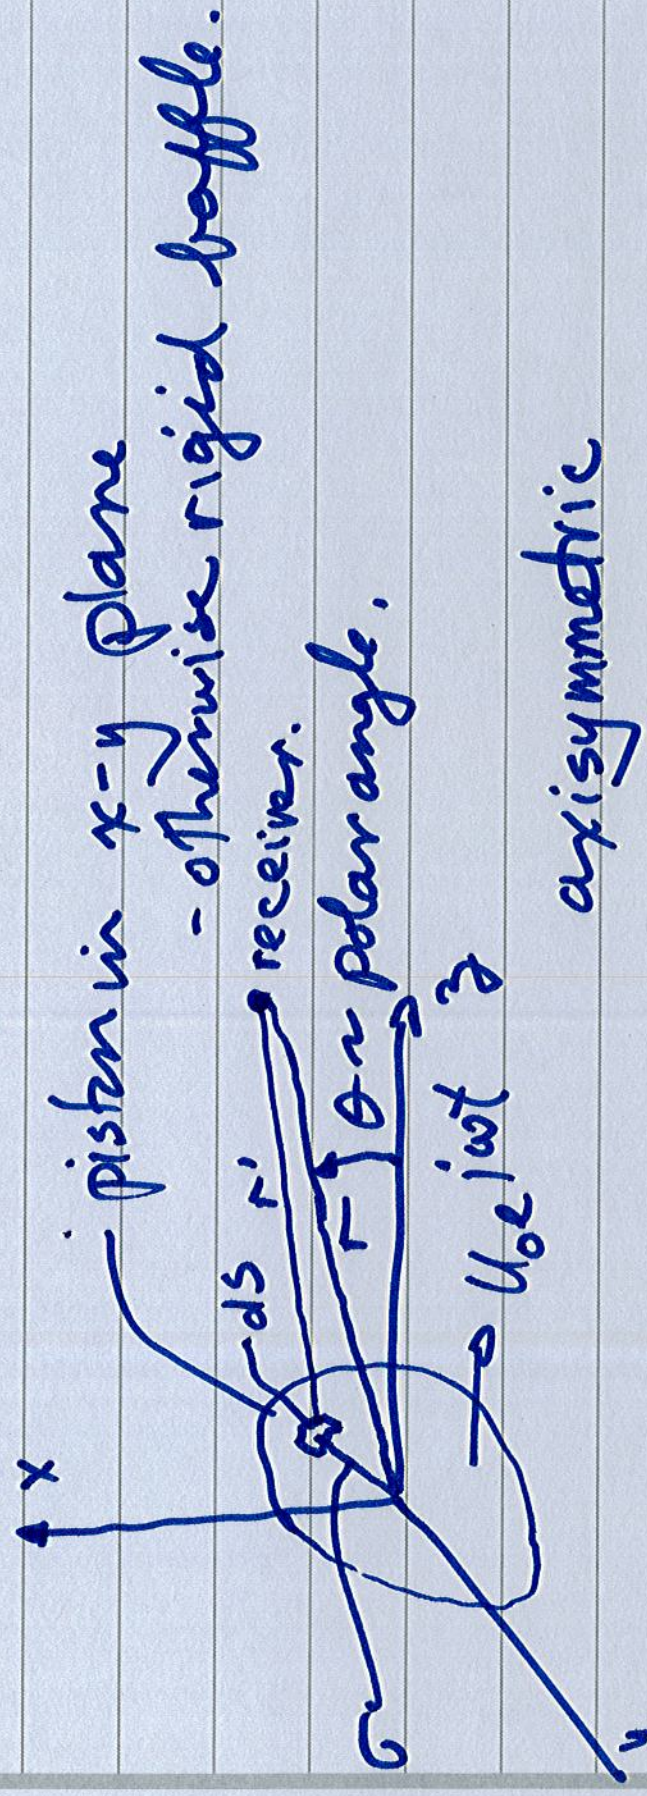 piston in x-y plane
- otherwise rigid baffle.
x
dS
r'
receiver.
r
θ ~ polar angle.
z
σ
u₀e^jωt
y
axisymmetric